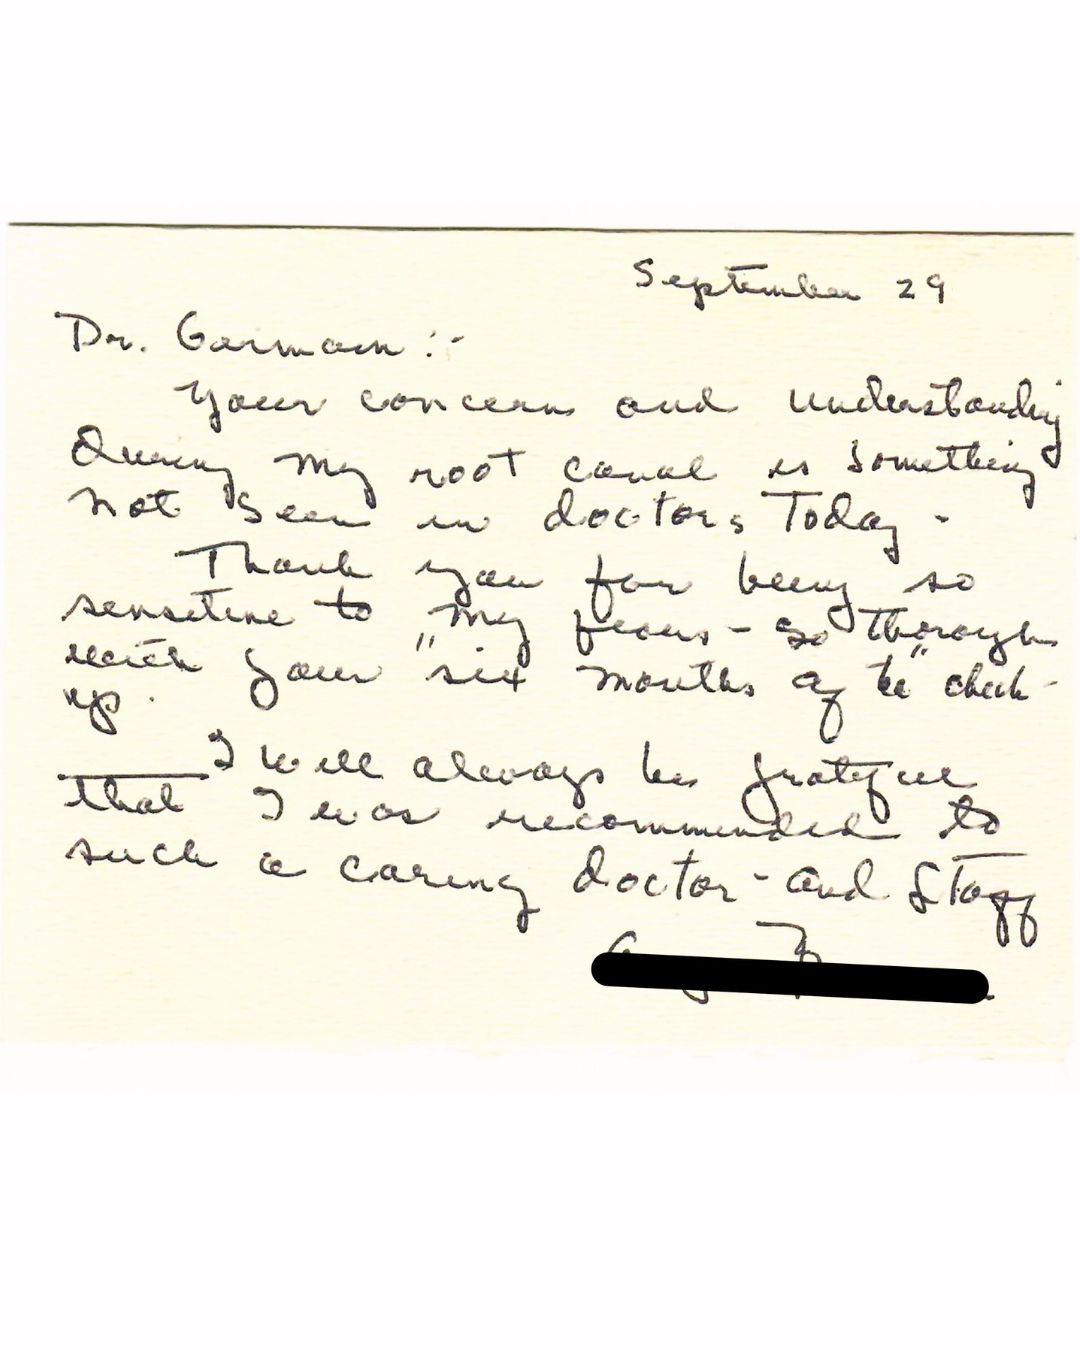 September 29
Dr. Garmain :-
Your concern and understanding
During my root canal is something
not seen in doctors Today -
Thank you for being so
sensitive to my fears - so thorough
with your "six months after" check-
up.
I will always be grateful
that I was recommended to
such a caring doctor - and Staff